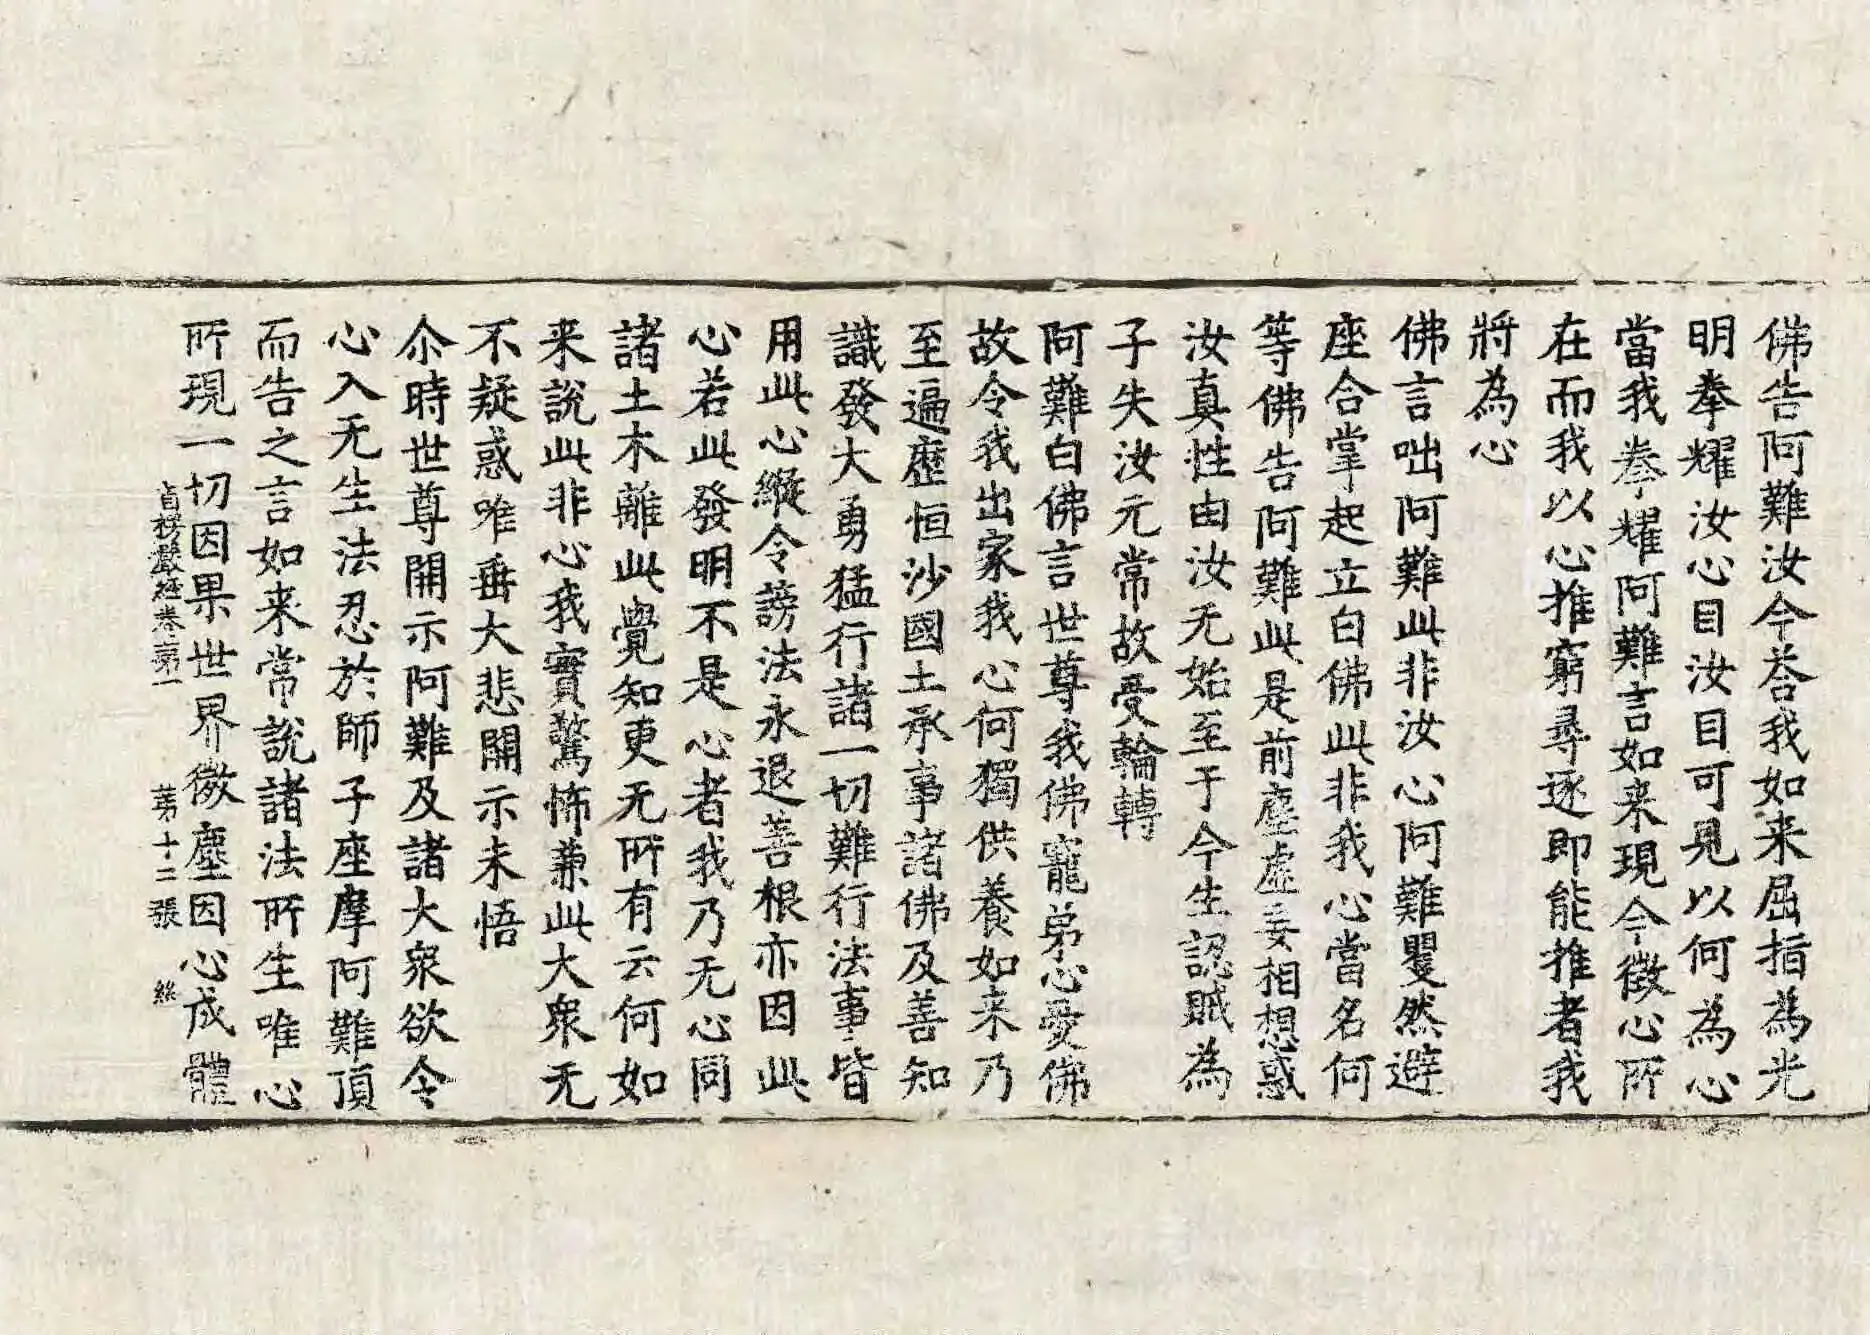 佛告阿難汝今荅我如来屈指為光
明拳耀汝心目汝目可見以何為心
當我拳耀阿難言如来現今徵心所
在而我以心推窮尋逐即能推者我
將為心
佛言咄阿難此非汝心阿難矍然避
座合掌起立白佛此非我心當名何
等佛告阿難此是前塵虛妄相想惑
汝真性由汝无始至于今生認賊為
子失汝元常故受輪轉
阿難白佛言世尊我佛寵弟心愛佛
故令我出家我心何獨供養如来乃
至遍歷恒沙國土承事諸佛及善知
識發大勇猛行諸一切難行法事皆
用此心縱令謗法永退善根亦因此
心若此發明不是心者我乃无心同
諸土木離此覺知更无所有云何如
来說此非心我實驚怖兼此大衆无
不疑惑唯垂大悲開示未悟
尒時世尊開示阿難及諸大衆欲令
心入无生法忍於師子座摩阿難頂
而告之言如来常說諸法所生唯心
所現一切因果世界微塵因心成體
首楞嚴經卷第一 第十二張